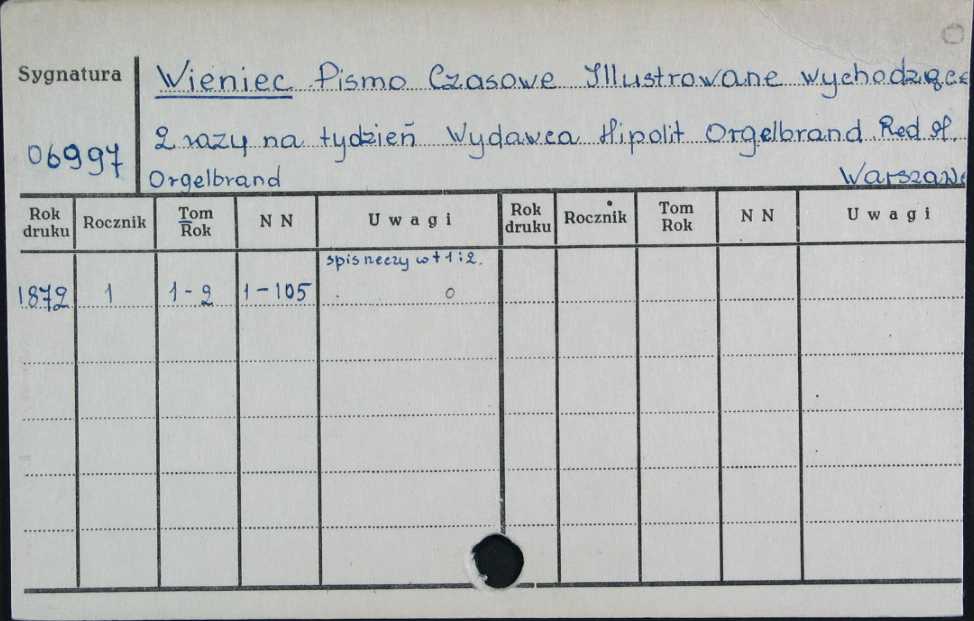 Sygnatura
Wieniec Pismo Czasowe Illustrowane wychodzące
06997
2 razy na tydzień Wydawca Hipolit Orgelbrand Red. H.
Orgelbrand Warszawa
Rok druku Rocznik Tom Rok N N Uwagi Rok druku Rocznik Tom Rok N N Uwagi
spis rzeczy w t 1 i 2.
1872 1 1-2 1-105 0